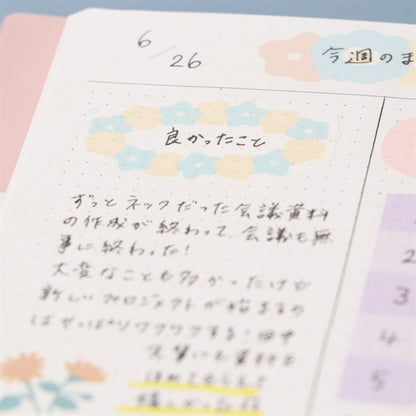 6/26
今週のま
良かったこと
ずっとネックだった会議資料
の作成が終わって、会議も無
事に終わった!
大変なことも多かったけど
新しいプロジェクトが始まるの
はやっぱりワクワクする!田中
先輩にも資料を
ほめてもらえて
2
3
4
5